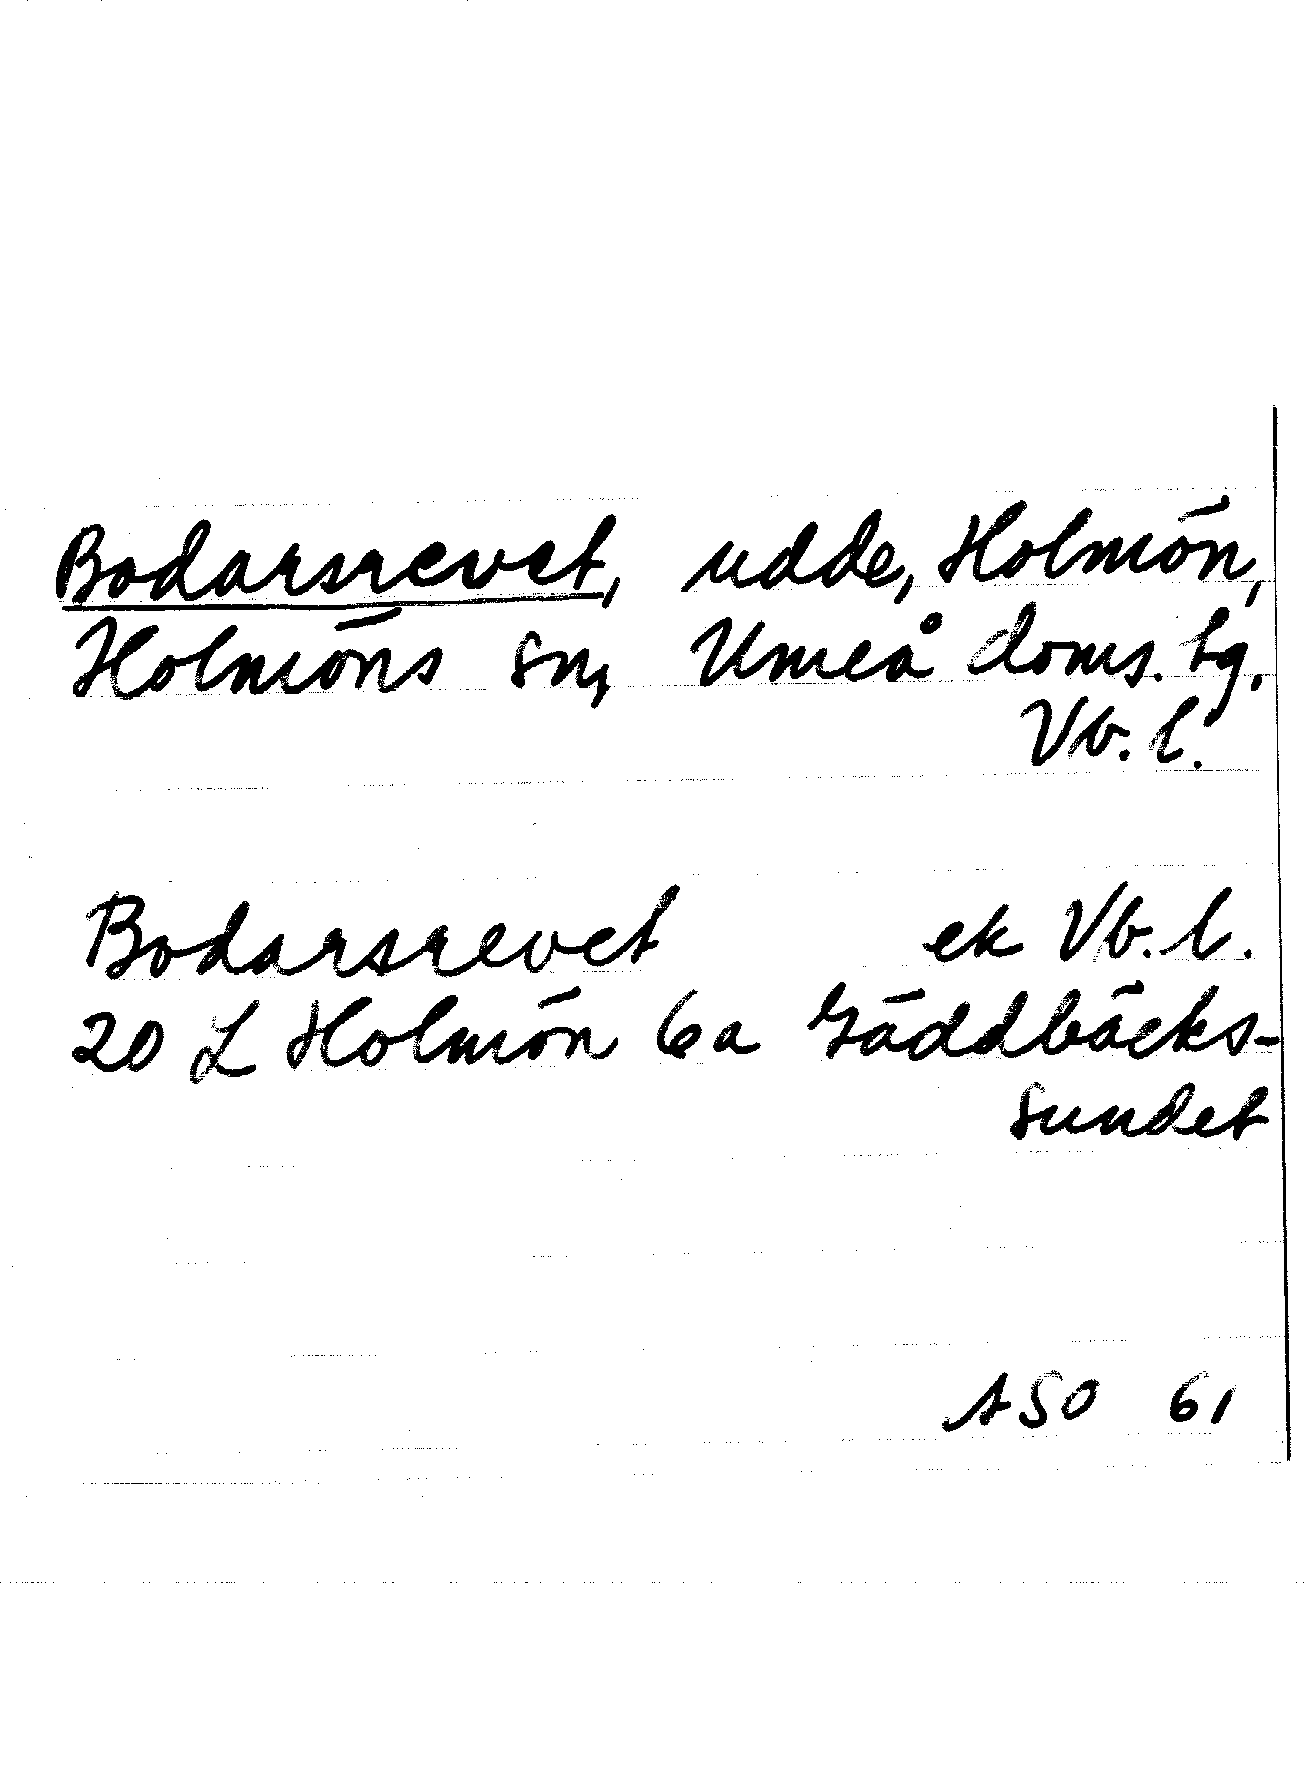 Bodarsrevet, udde, Holmön,
Holmöns sn, Umeå doms. tg.
Vb. l.
Bodarsrevet ek Vb. l.
20 L Holmön 6a Gäddbäcks-
sundet
ASO 61